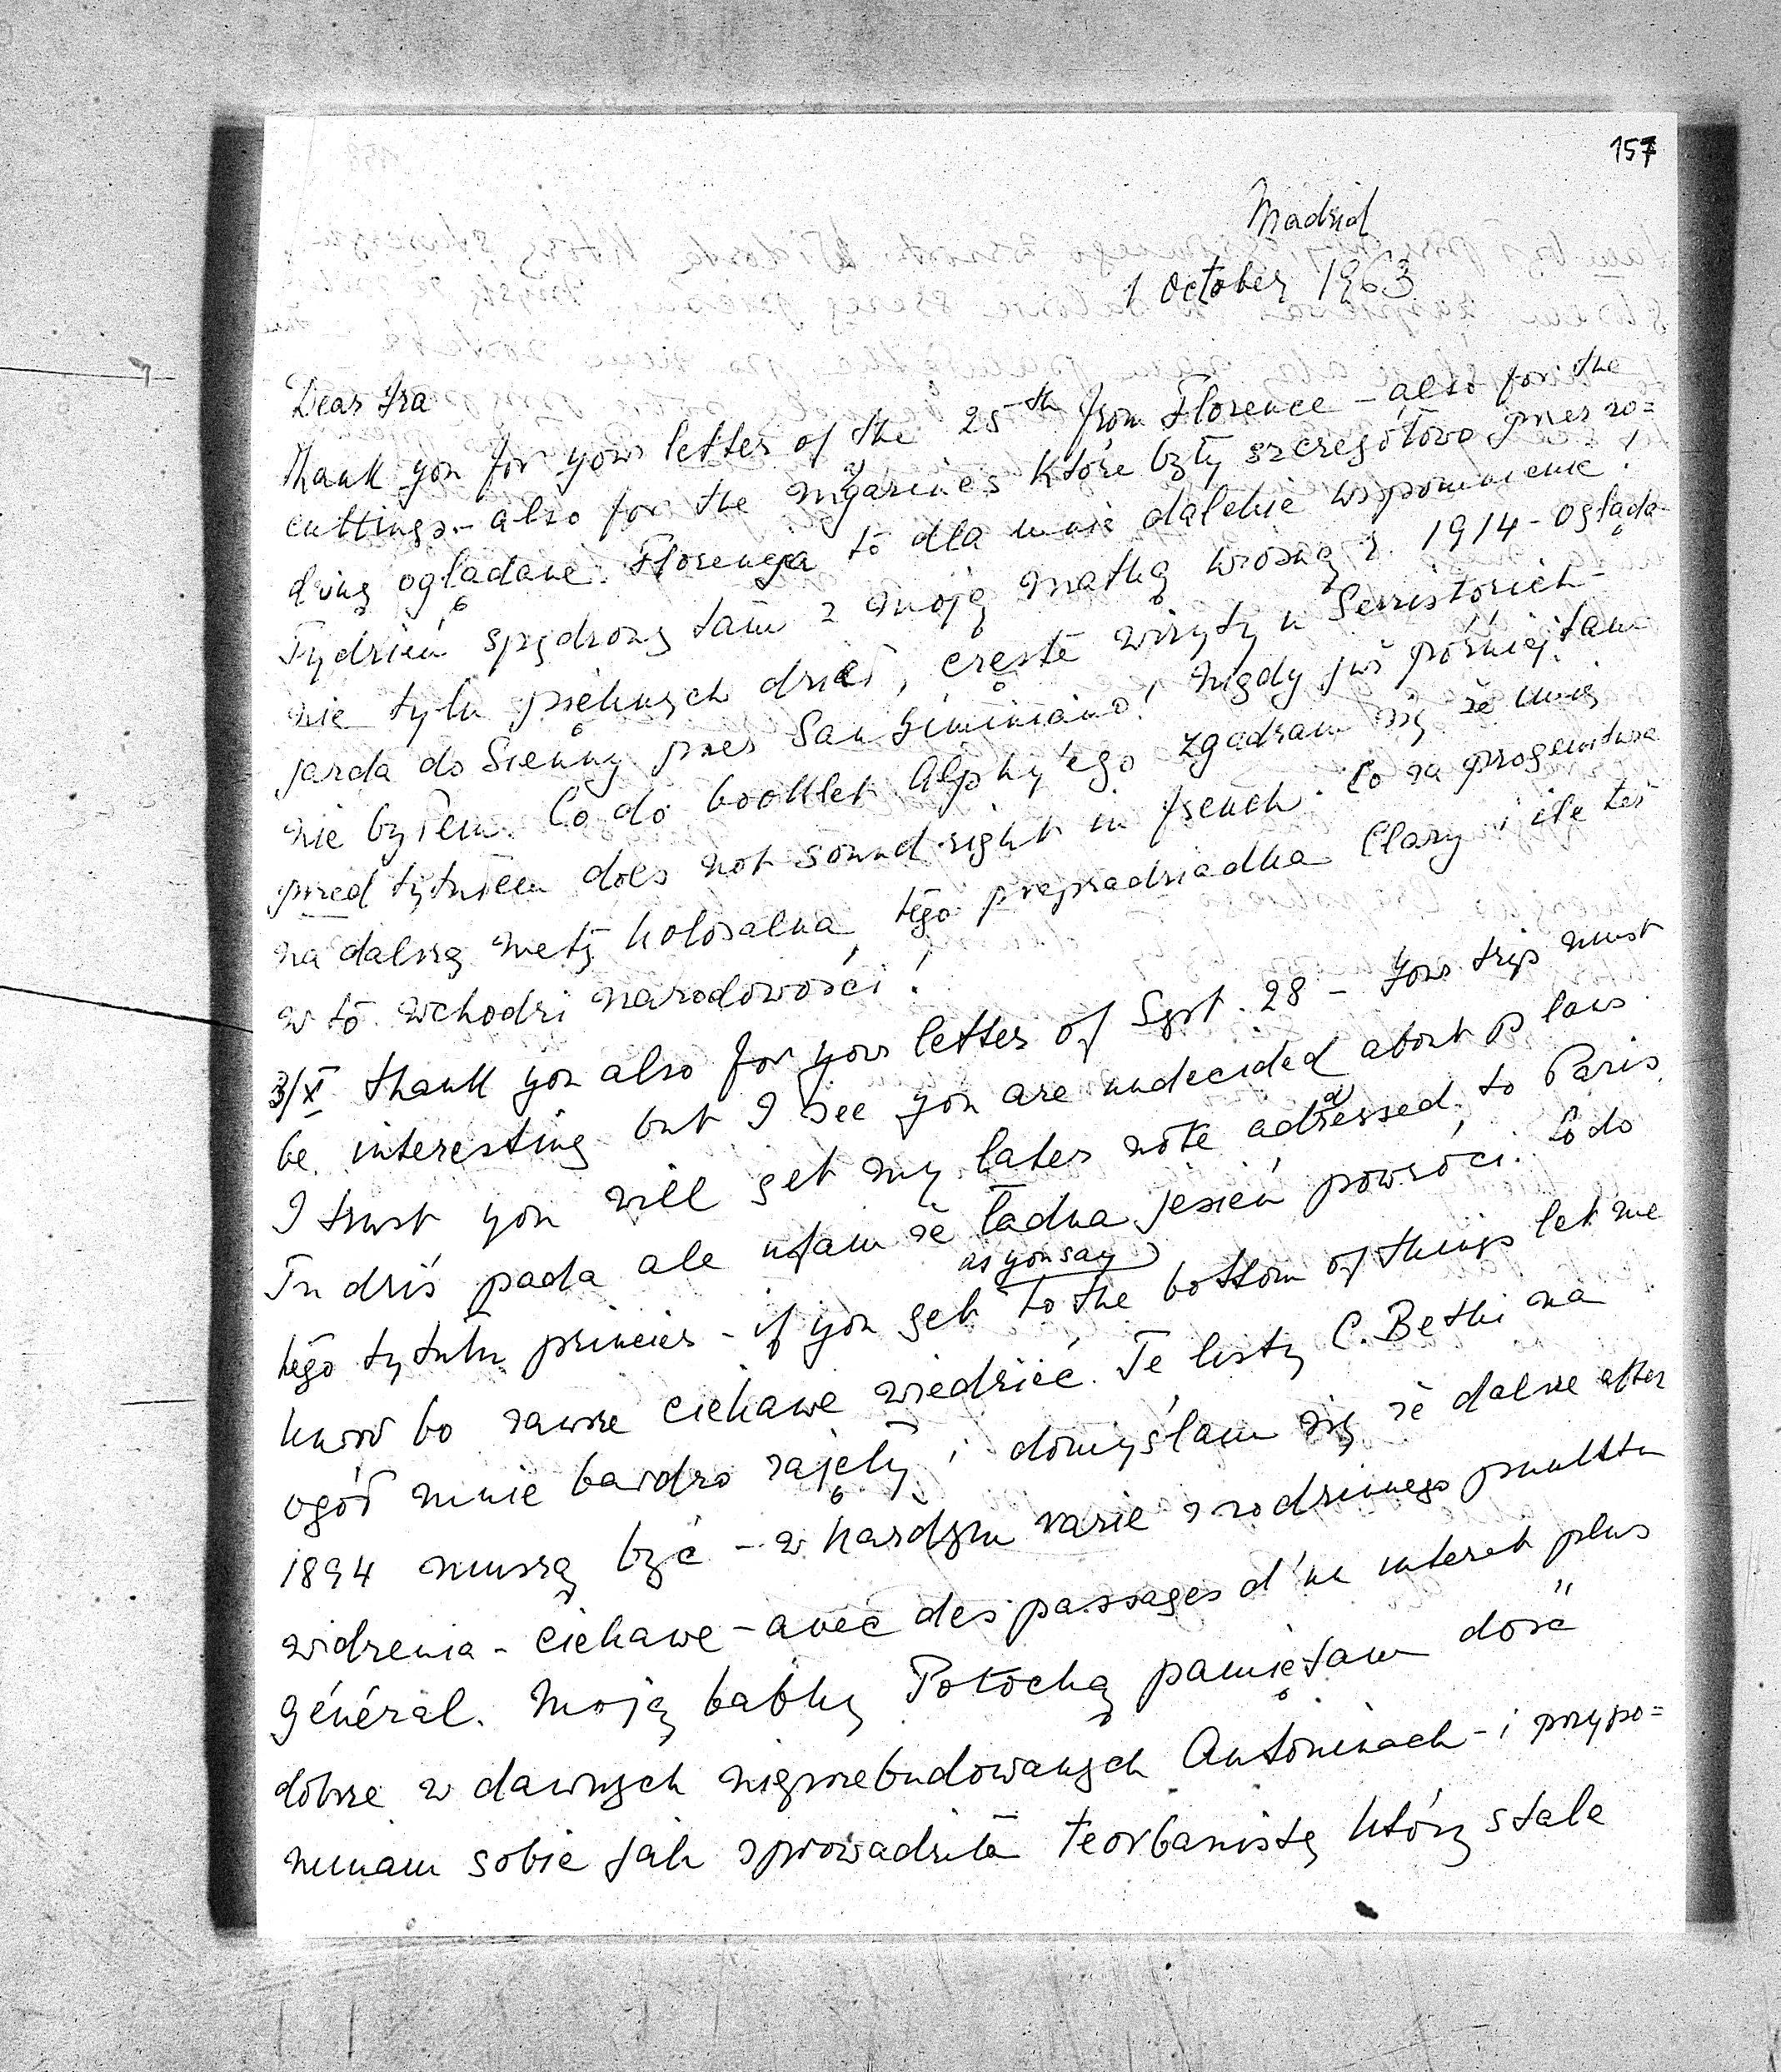 157
Madrid
1 October 1963
Dear Ira
Thank you for your letter of the 25th from Florence – also for the
cuttings – also for the magazines które były szczegółowo przez ro=
dzinę oglądane. Florencja to dla mnie dalekie wspomnienie!
Tydzień spędzony tam z moją matką wiosną r. 1914 – ogląda-
nie tylu pięknych dzieł, częste wizyty u Serristorich –
jazda do Sienny przez San Giminiano! Nigdy już później tam
nie byłem. Co do booklet Alphy'ego zgadzam się że
przed tytułem does not sound right in french. Co za progenitura
na dalszą metę kolosalna tego prapradziadka Clary i ile też
w to wchodzi narodowości!
3/X thank you also for your letter of Sept. 28 – Your trip must
be interesting but I see you are undecided about plans
I trust you will get my later note addressed to Paris.
Tu dziś pada ale ufam że ładna jesień powróci. Co do
tego tytułu princier – if you get as you say to the bottom of things let me
know bo zawsze ciekawe wiedzieć. Te listy C. Betki na
ogół mnie bardzo zajęły i domyślam się że dalsze after
1894 muszą być – w każdym razie z rodzinnego punktu
widzenia – ciekawe – avec des passages d'un interet plus
général. Moją babkę Potocką pamiętam dość
dobrze w dawnych nieprzebudowanych Antoninach – i przypo=
minam sobie jak sprowadziła teorbanistę który stale